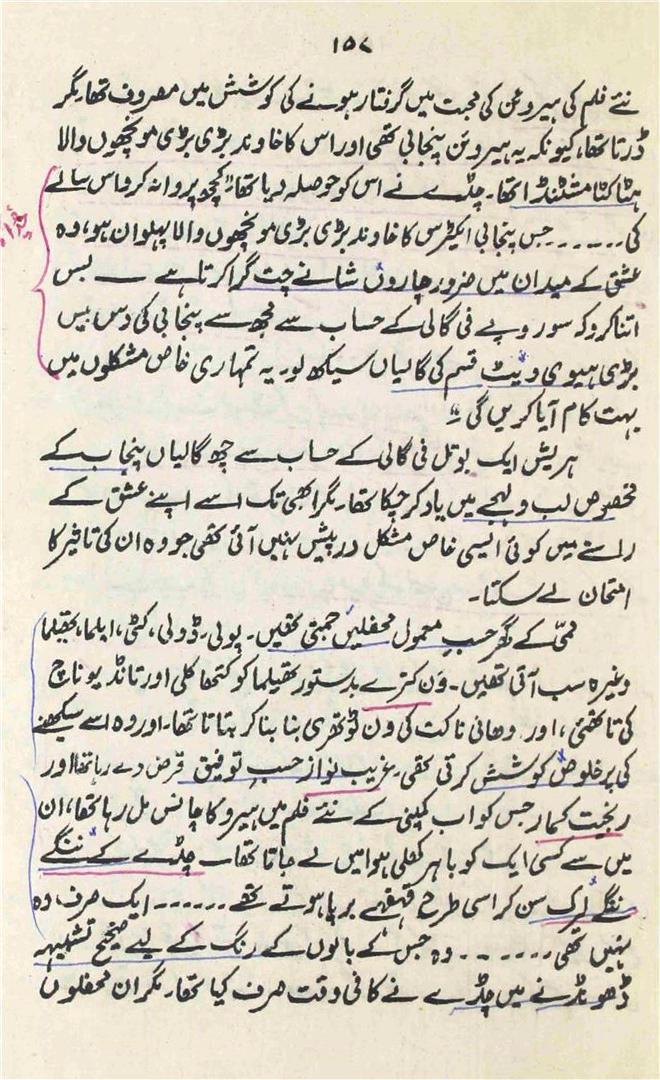 ۱۵۷
نئے فلم کی ہیروئن کی محبت میں گرفتار ہونے کی کوشش میں مصروف تھا۔ مگر
ڈرتا تھا، کیونکہ یہ ہیروئن پنجابی تھی اور اس کا خاوند بڑی بڑی مونچھوں والا
ہٹا کٹا مشٹنڈا تھا۔ چڈے نے اس کو حوصلہ دیا تھا: "کچھ پروا نہ کرو اس سالے
کی۔۔۔۔۔۔ جس پنجابی ایکٹرس کا خاوند بڑی بڑی مونچھوں والا پہلوان ہو، وہ
عشق کے میدان میں ضرور چاروں شانے چت گرا کرتا ہے — بس
اتنا کرو کہ سو روپے فی گالی کے حساب سے مجھ سے پنجابی کی دس بیس
بڑی ہیوی ویٹ قسم کی گالیاں سیکھ لو۔ یہ تمہاری خاص مشکلوں میں
بہت کام آیا کریں گی۔"
ہریش ایک بوتل فی گالی کے حساب سے چھ گالیاں پنجاب کے
مخصوص لب و لہجے میں یاد کر چکا تھا۔ مگر ابھی تک اسے اپنے عشق کے
راستے میں کوئی ایسی خاص مشکل درپیش نہیں آئی تھی جو وہ ان کی تاثیر کا
امتحان لے سکتا۔
ممّی کے گھر حسبِ معمول محفلیں جمتی تھیں۔ پولی۔ ڈولی، کٹی، ایلما، تھیلما
وغیرہ سب آتی تھیں۔ ون کترے بدستور تھیلما کو کتھا کلی اور تانڈیو ناچ
کی تا تھئی، اور دھانی ناکت کی ون ٹو تھری بنا بنا کر بتاتا تھا۔ اور وہ اسے سیکھنے
کی پرخلوص کوشش کرتی تھی۔ غریب نواز حسبِ توفیق قرض دے رہا تھا اور
رنجیت کمار جس کو اب کمپنی کے نئے فلم میں ہیرو کا چانس مل رہا تھا، ان
میں سے کسی ایک کو باہر کھلی ہوا میں لے جاتا تھا۔ چڈے کے ننگے
ننگے لمرک سن کر اسی طرح قہقہے برپا ہوتے تھے۔۔۔۔۔۔ ایک صرف وہ
نہیں تھی۔۔۔۔۔۔۔ وہ جس کے بالوں کے رنگ کے لیے صحیح تشبیہہ
ڈھونڈنے میں چڈے نے کافی وقت صرف کیا تھا۔ مگر ان محفلوں